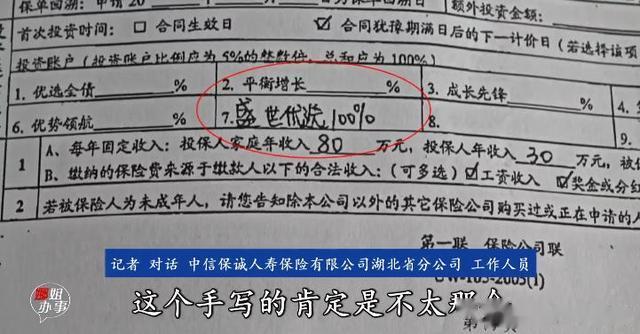 保单回溯：申请20
额外投资金额：
首次投资时间： □ 合同生效日 ☑ 合同犹豫期满日后的下一计价日（若选择该项
投资账户（投资账户比例应为5%的整数倍，总和应为100%）
1. 优选全债 % 2. 平衡增长 % 3. 成长先锋 % 4.
6. 优势领航 % 7. 盛世优选100% 8. 9.
1 A、每年固定收入：投保人家庭年收入 80 万元，投保人年收入 30 万元，被
B、缴纳的保险费来源于缴款人以下的合法收入：（可多选）☑工资收入 ☑奖金或分红
2 若被保险人为未成年人，请您告知除本公司以外的其它保险公司购买过或正在申请的人
第一联 保险公司联
记者 对话 中信保诚人寿保险有限公司湖北省分公司 工作人员
姐
办事
这个手写的肯定是不太那个